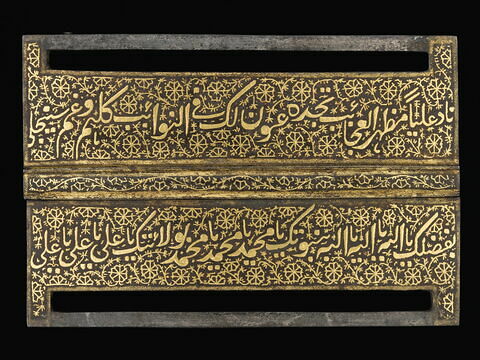 ناد علياً مظهر العجائب تجده عون لك في النوائب كل هم و غم سينجلي
يا الله بنبوتك يا محمد يا محمد يا محمد بولايتك يا علي يا علي يا علي